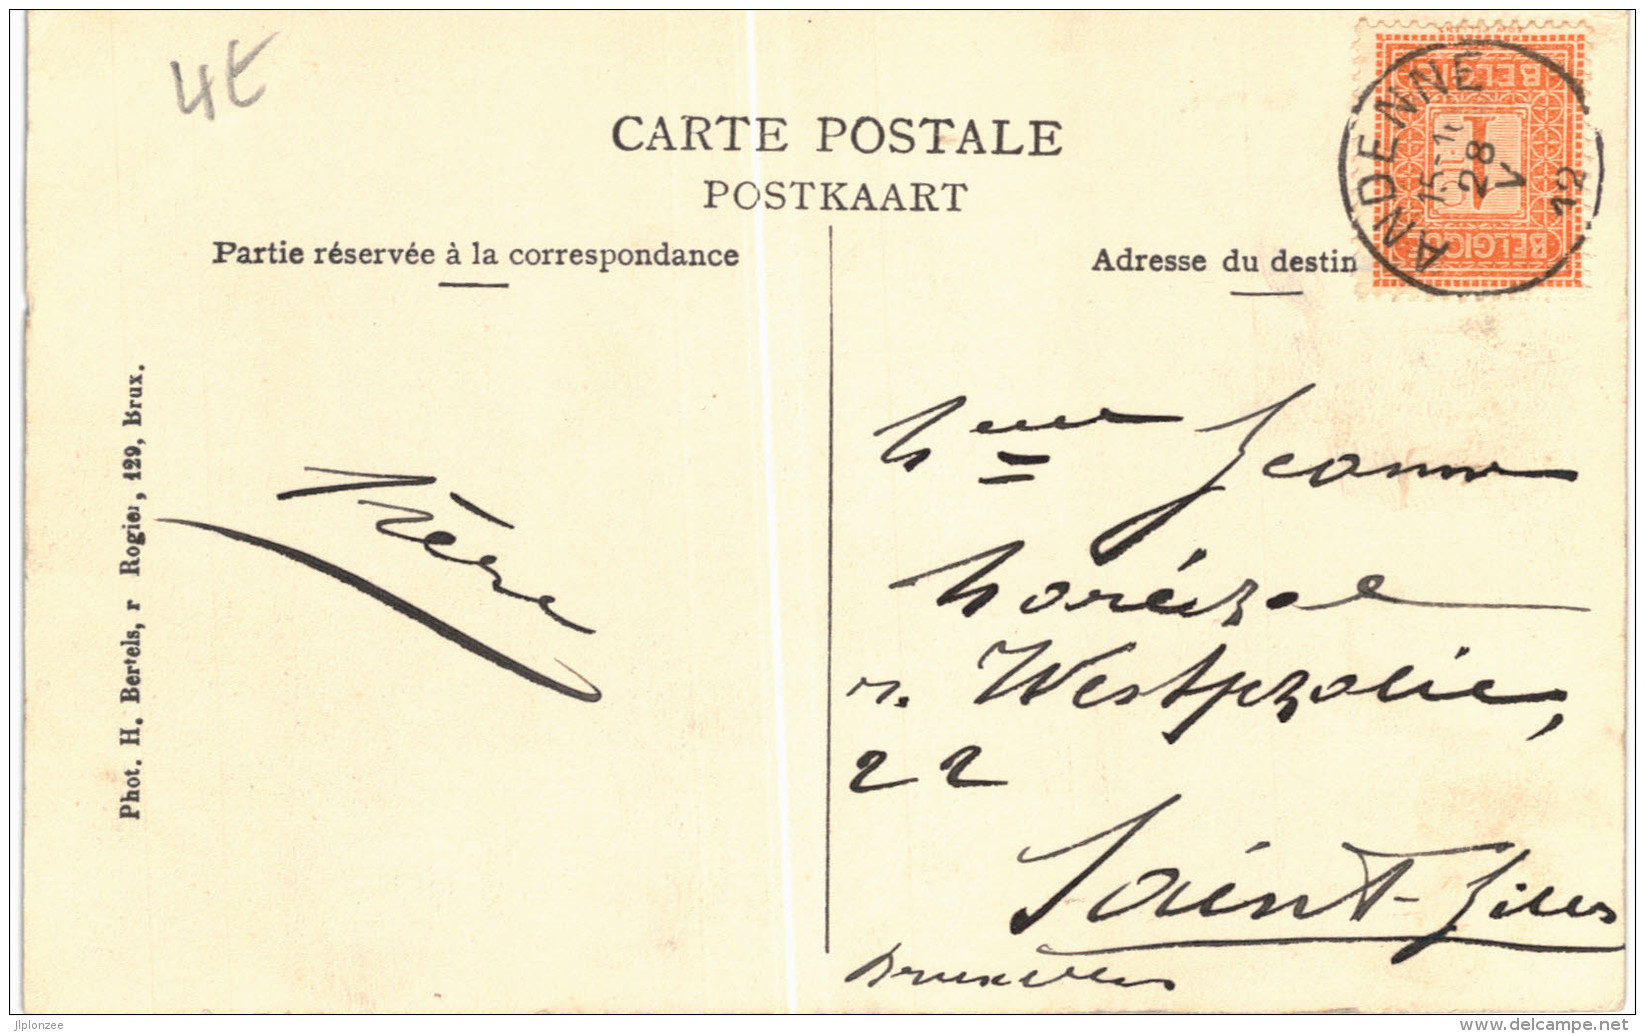 4€
CARTE POSTALE
POSTKAART
Partie réservée à la correspondance
Adresse du destin
BELGIE
1
BELGIQUE
ANDENNE
28
V
12
Phot. H. Bertels, r Rogier, 129, Brux.
Mme Jeanne
r. Westphalie,
22
Saint-Gilles
Bruxelles
jlplonzee
www.delcampe.net